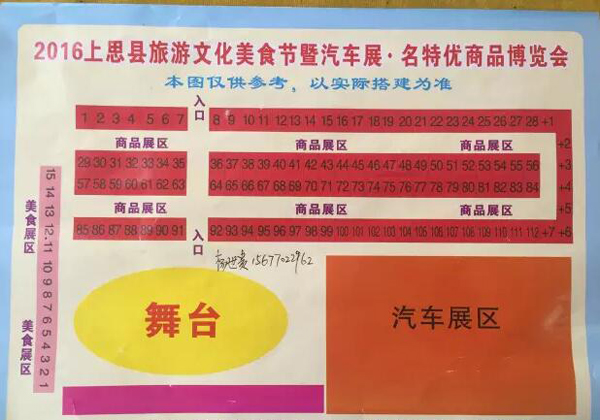 2016上思县旅游文化美食节暨汽车展·名特优商品博览会
本图仅供参考，以实际搭建为准
入口
1 2 3 4 5 6 7
8 9 10 11 12 13 14 15 16 17 18 19 20 21 22 23 24 25 26 27 28 +1
商品展区 商品展区 商品展区 +2
29 30 31 32 33 34 35
36 37 38 39 40 41 42 43 44 45 46 47 48 49 50 51 52 53 54 55 56 +3
57 58 59 60 61 62 63
64 65 66 67 68 69 70 71 72 73 74 75 76 77 78 79 80 81 82 83 84 +4
商品展区 商品展区 商品展区 +5
85 86 87 88 89 90 91
92 93 94 95 96 97 98 99 100 101 102 103 104 105 106 107 108 109 110 111 112 +7 +6
入口
15 14 13 12 11 10 9 8 7 6 5 4 3 2 1
美食展区
美食展区
15677022962
舞台
汽车展区